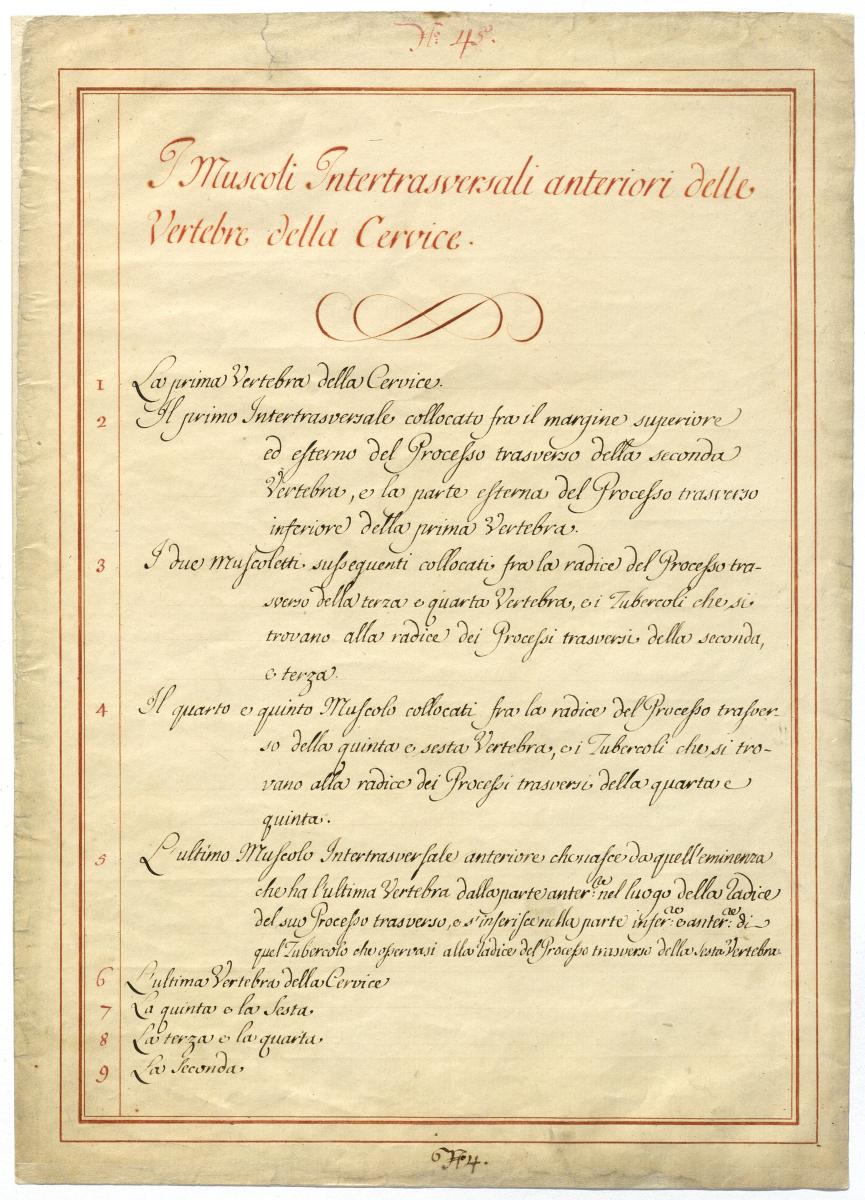 N.º 45.
I Muscoli Intertrasversali anteriori delle
Vertebre della Cervice.
1 La prima Vertebra della Cervice.
2 Il primo Intertrasversale collocato fra il margine superiore
ed esterno del Processo trasverso della seconda
Vertebra, e la parte esterna del Processo trasverso
inferiore della prima Vertebra.
3 I due muscoletti susseguenti collocati fra la radice del Processo tra-
sverso della terza e quarta Vertebra, e i Tubercoli che si
trovano alla radice dei Processi trasversi della seconda,
e terza.
4 Il quarto e quinto Muscolo collocati fra la radice del Processo trasver-
so della quinta e sesta Vertebra, e i Tubercoli che si tro-
vano alla radice dei Processi trasversi della quarta e
quinta.
5 L'ultimo Muscolo Intertrasversale anteriore che nasce da quell'eminenza
che ha l'ultima Vertebra dalla parte anter.re nel luogo della radice
del suo Processo trasverso, e s'inserisce nella parte infer.re e anter.re di
quel Tubercolo che osservasi alla radice del Processo trasverso della sesta Vertebra.
6 L'ultima Vertebra della Cervice
7 La quinta e la Sesta.
8 La terza e la quarta.
9 La Seconda.
Nº 4.